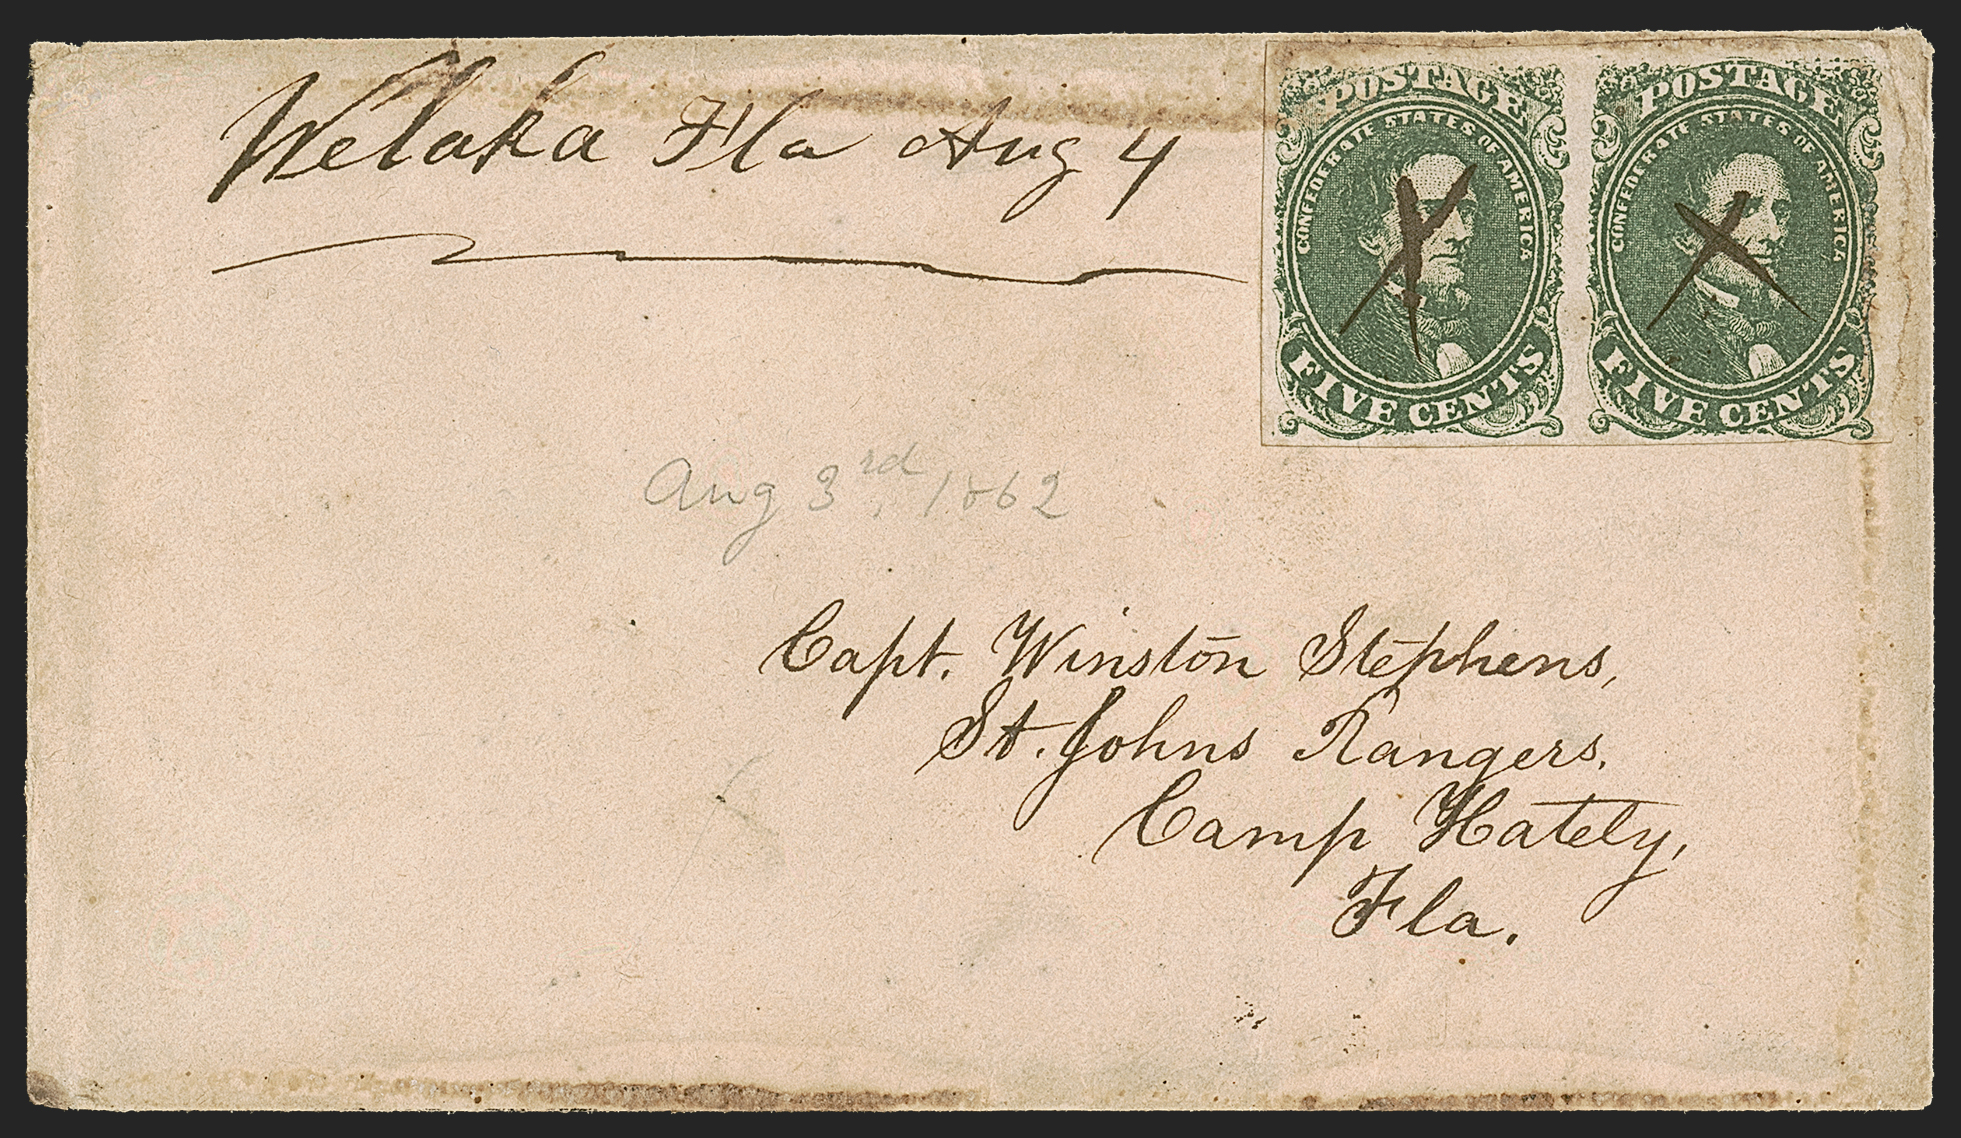 Welaka Fla Aug 4
POSTAGE
CONFEDERATE STATES OF AMERICA
FIVE CENTS
POSTAGE
CONFEDERATE STATES OF AMERICA
FIVE CENTS
Aug 3rd, 1862
Capt. Winston Stephens,
St. Johns Rangers.
Camp Hately,
Fla.